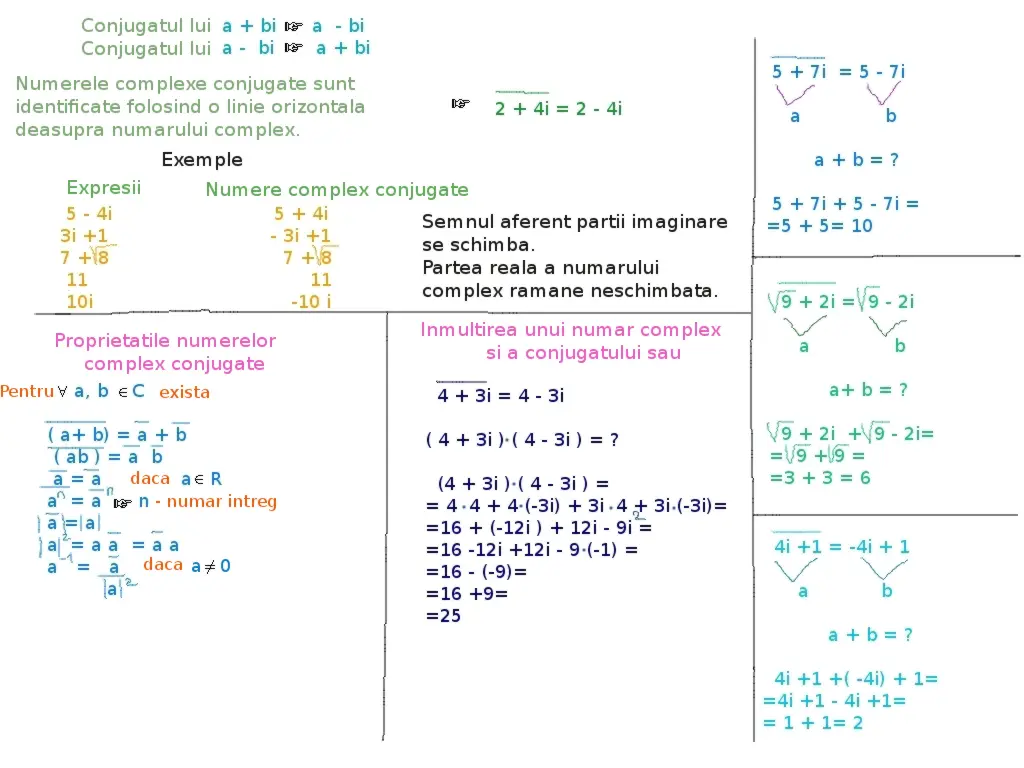 Conjugatul lui a + bi ☞ a - bi
Conjugatul lui a - bi ☞ a + bi
Numerele complexe conjugate sunt
identificate folosind o linie orizontala
deasupra numarului complex.
☞ 2 + 4i = 2 - 4i
Exemple
Expresii Numere complex conjugate
5 - 4i 5 + 4i
3i +1 - 3i +1
7 + √8 7 + √8
11 11
10i -10 i
Semnul aferent partii imaginare
se schimba.
Partea reala a numarului
complex ramane neschimbata.
Proprietatile numerelor
complex conjugate
Pentru ∀ a, b ∈ C exista
( a+ b) = a + b
( ab ) = a b
a = a daca a ∈ R
aⁿ = aⁿ ☞ n - numar intreg
|a|=|a|
|a|² = a a = a a
a⁻¹ = a daca a ≠ 0
|a|²
Inmultirea unui numar complex
si a conjugatului sau
4 + 3i = 4 - 3i
( 4 + 3i )·( 4 - 3i ) = ?
(4 + 3i )·( 4 - 3i ) =
= 4·4 + 4·(-3i) + 3i·4 + 3i·(-3i)=
=16 + (-12i ) + 12i - 9i² =
=16 -12i +12i - 9·(-1) =
=16 - (-9)=
=16 +9=
=25
5 + 7i = 5 - 7i
a b
a + b = ?
5 + 7i + 5 - 7i =
=5 + 5= 10
√9 + 2i = √9 - 2i
a b
a+ b = ?
√9 + 2i + √9 - 2i=
= √9 + √9 =
=3 + 3 = 6
4i +1 = -4i + 1
a b
a + b = ?
4i +1 +( -4i) + 1=
=4i +1 - 4i +1=
= 1 + 1= 2